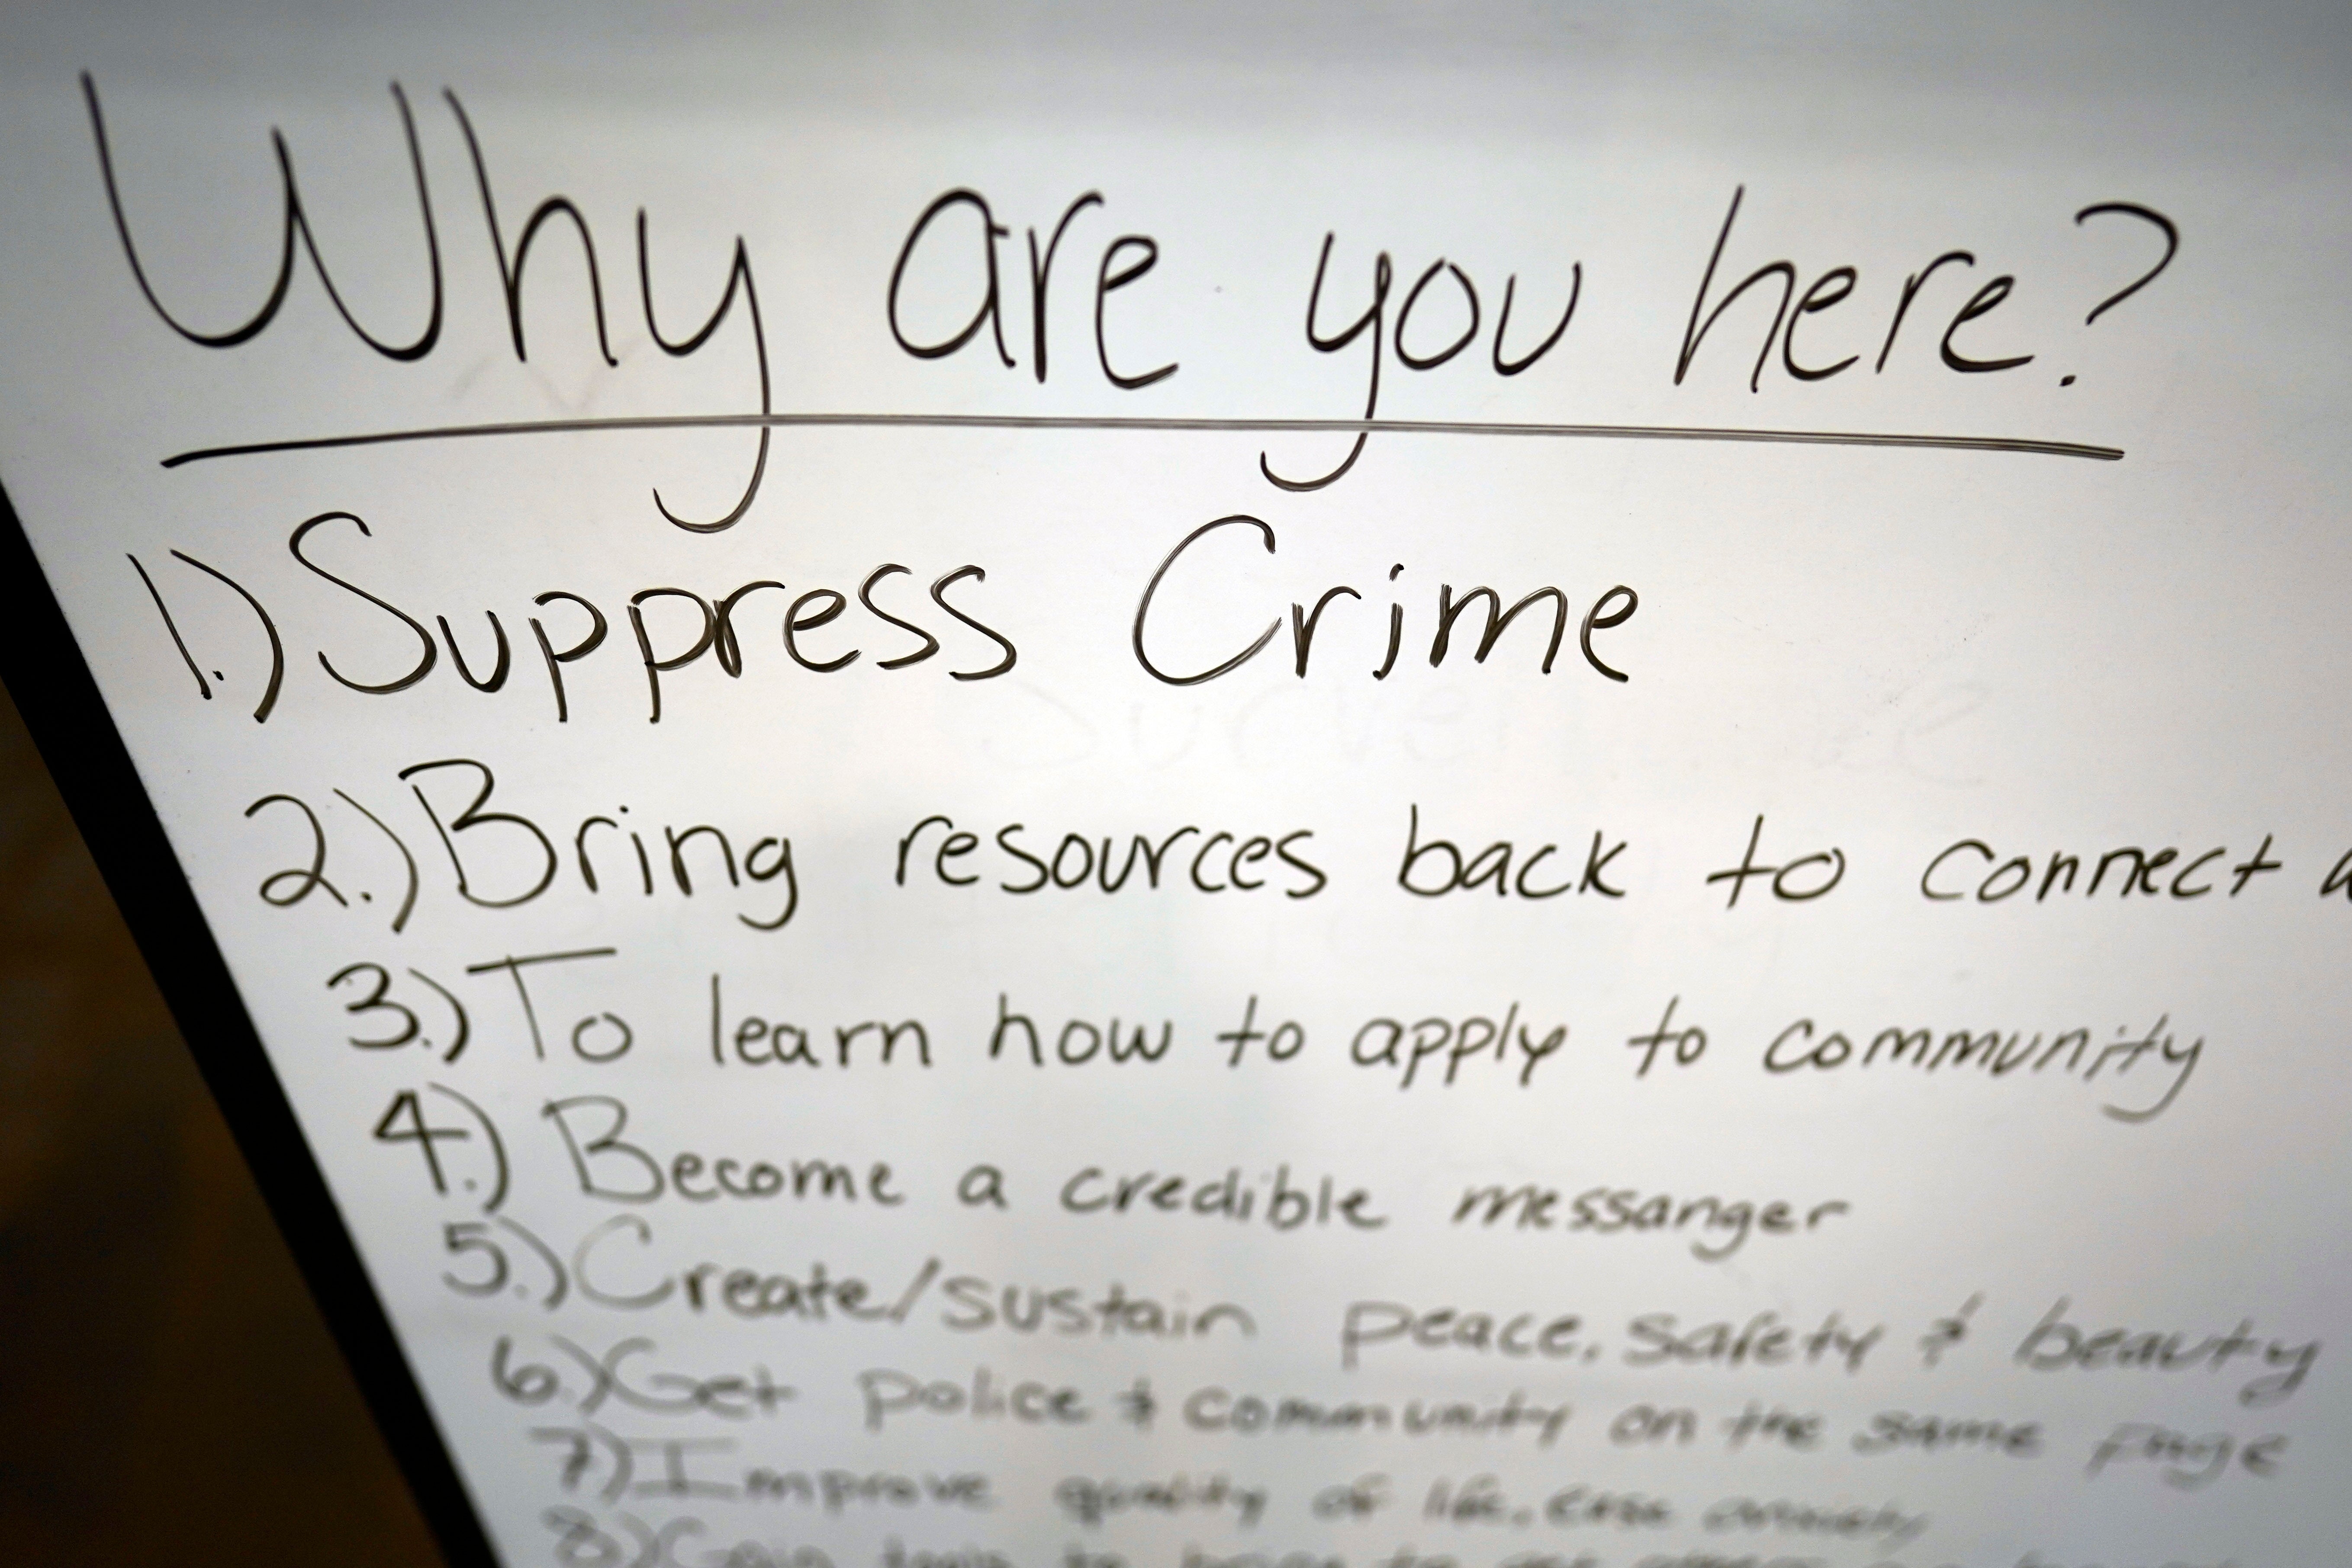 Why are you here?
1.) Suppress Crime
2.) Bring resources back to connect
3.) To learn how to apply to community
4.) Become a credible messanger
5.) Create/sustain peace, safety & beauty
6.) Get police & community on the same page
7.) Improve quality of life, ease anxiety
8.) Gain tools to bring to